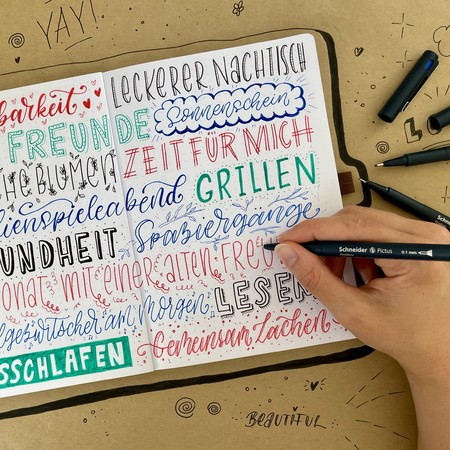 YAY!
LECKERER NACHTISCH
barkeit
Sonnenschein
FREUNDE
ZEIT FÜR MICH
HE BLUMEN
GRILLEN
lienspieleabend
Spaziergänge
UNDHEIT
onat mit einer alten Freu
LESEN
lgezwitscher am Morgen
Gemeinsam Lachen
SSCHLAFEN
Schneider Pictus 0.1 mm
BEAUTIFUL